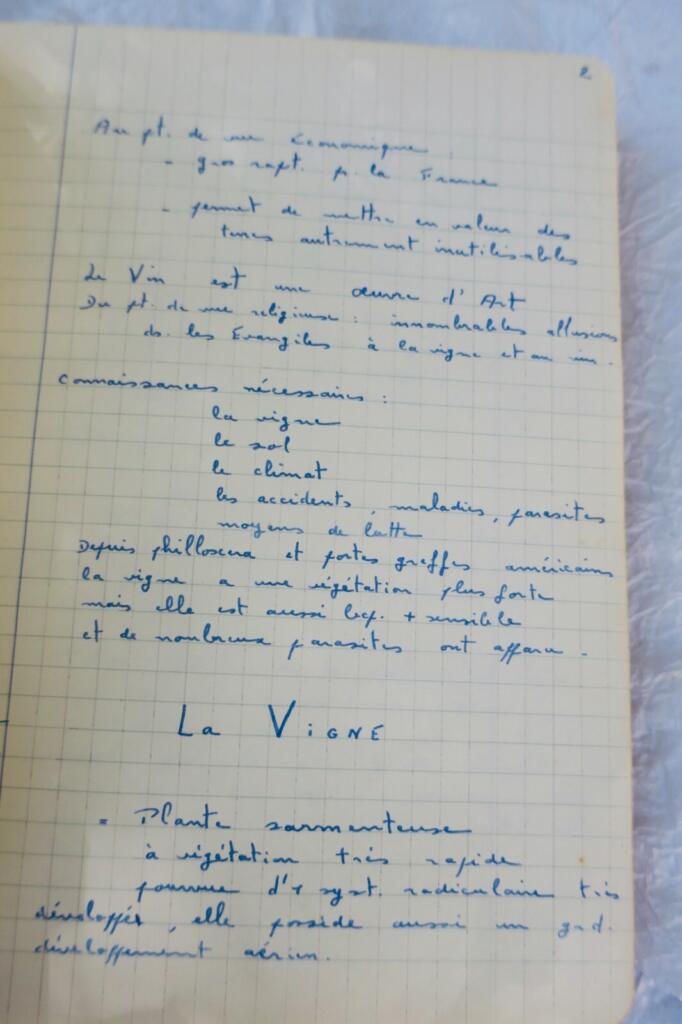 2
Au pt. de vue économique.
- gros rapt. p. la France
- permet de mettre en valeur des
terres autrement inutilisables
Le Vin est une œuvre d'Art
Du pt. de vue religieuse : innombrables allusions
ds. les Évangiles à la vigne et au vin.
Connaissances nécessaires :
la vigne
le sol
le climat
les accidents, maladies, parasites
moyens de lutte
Depuis philloxera et portes greffes américains
la vigne a une végétation plus forte
mais elle est aussi bcp. + sensible
et de nombreux parasites ont apparu.
La VIGNE
= Plante sarmenteuse
à végétation très rapide
pourvue d'1 syst. radiculaire très
développés, elle possède aussi un gd.
développement aérien.